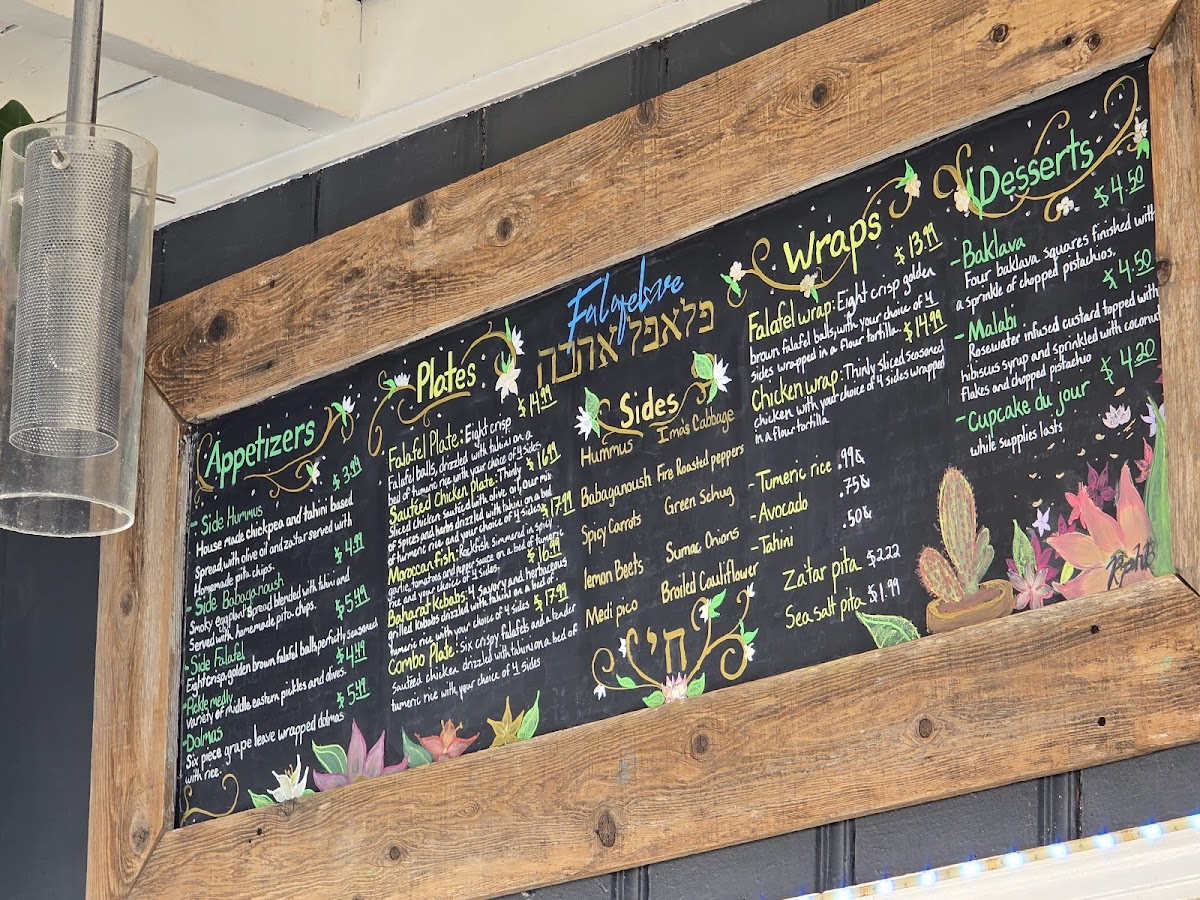 Appetizers
$ 3.99
- Side Hummus
House made chickpea and tahini based
Spread with olive oil and za'tar served with
Homemade pita chips.
$ 4.99
- Side Babaganoush
Smoky eggplant spread blended with tahini and
Served with homemade pita chips.
$ 5.49
- Side Falafel
Eight crisp golden brown falafel balls, perfectly seasoned
$ 4.49
-Pickle medly
variety of middle eastern pickles and olives.
$ 5.49
-Dolmas
Six piece grape leave wrapped dolmas
with rice.
Plates
$ 14.99
Falafel Plate: Eight crisp
Falafel balls, drizzled with tahini on a
bed of tumeric rice with your choice of 4 sides.
$ 16.99
Sautéed Chicken Plate: Thinly
Sliced chicken sautéed with olive oil, our mix
of spices and herbs drizzled with tahini on a bed
of turmeric rice and your choice of 4 sides.
$ 17.99
Moroccan fish: Rockfish Simmered in spicy
garlic, tomatoes and pepper sauce on a bed of tumeric
rice and your choice of 4 sides.
$ 16.99
Baharat kebabs: 4 savory and herbaceous
grilled kabobs drizzled with tahini on a bed of
tumeric rice with your choice of 4 sides
$ 17.99
Combo Plate: Six crispy falafels and a tender
Sautéed chicken drizzled with tahini on a bed of
tumeric rice with your choice of 4 sides
Falafelove
פלאפל אהבה
Sides
Hummus
Imas Cabbage
Babaganoush
Fire Roasted peppers
Spicy Carrots
Green Schug
lemon Beets
Sumac Onions
Medi pico
Broiled Cauliflower
חי
Wraps
$ 13.99
Falafel wrap: Eight crisp golden
brown falafel balls, with your choice of 4
sides wrapped in a flour tortilla.
$ 14.99
Chicken wrap: Thinly sliced seasoned
chicken with your choice of 4 sides wrapped
in a flour tortilla
-Tumeric rice .99¢
-Avocado .75¢
-Tahini .50¢
Za'tar pita $2.22
Sea salt pita $1.99
Desserts
$ 4.50
-Baklava
Four baklava squares finished with
a sprinkle of chopped pistachios.
$ 4.50
-Malabi
Rosewater infused custard topped with
hibiscus syrup and sprinkled with coconut
flakes and chopped pistachio
$ 4.20
-Cupcake du jour
while supplies lasts